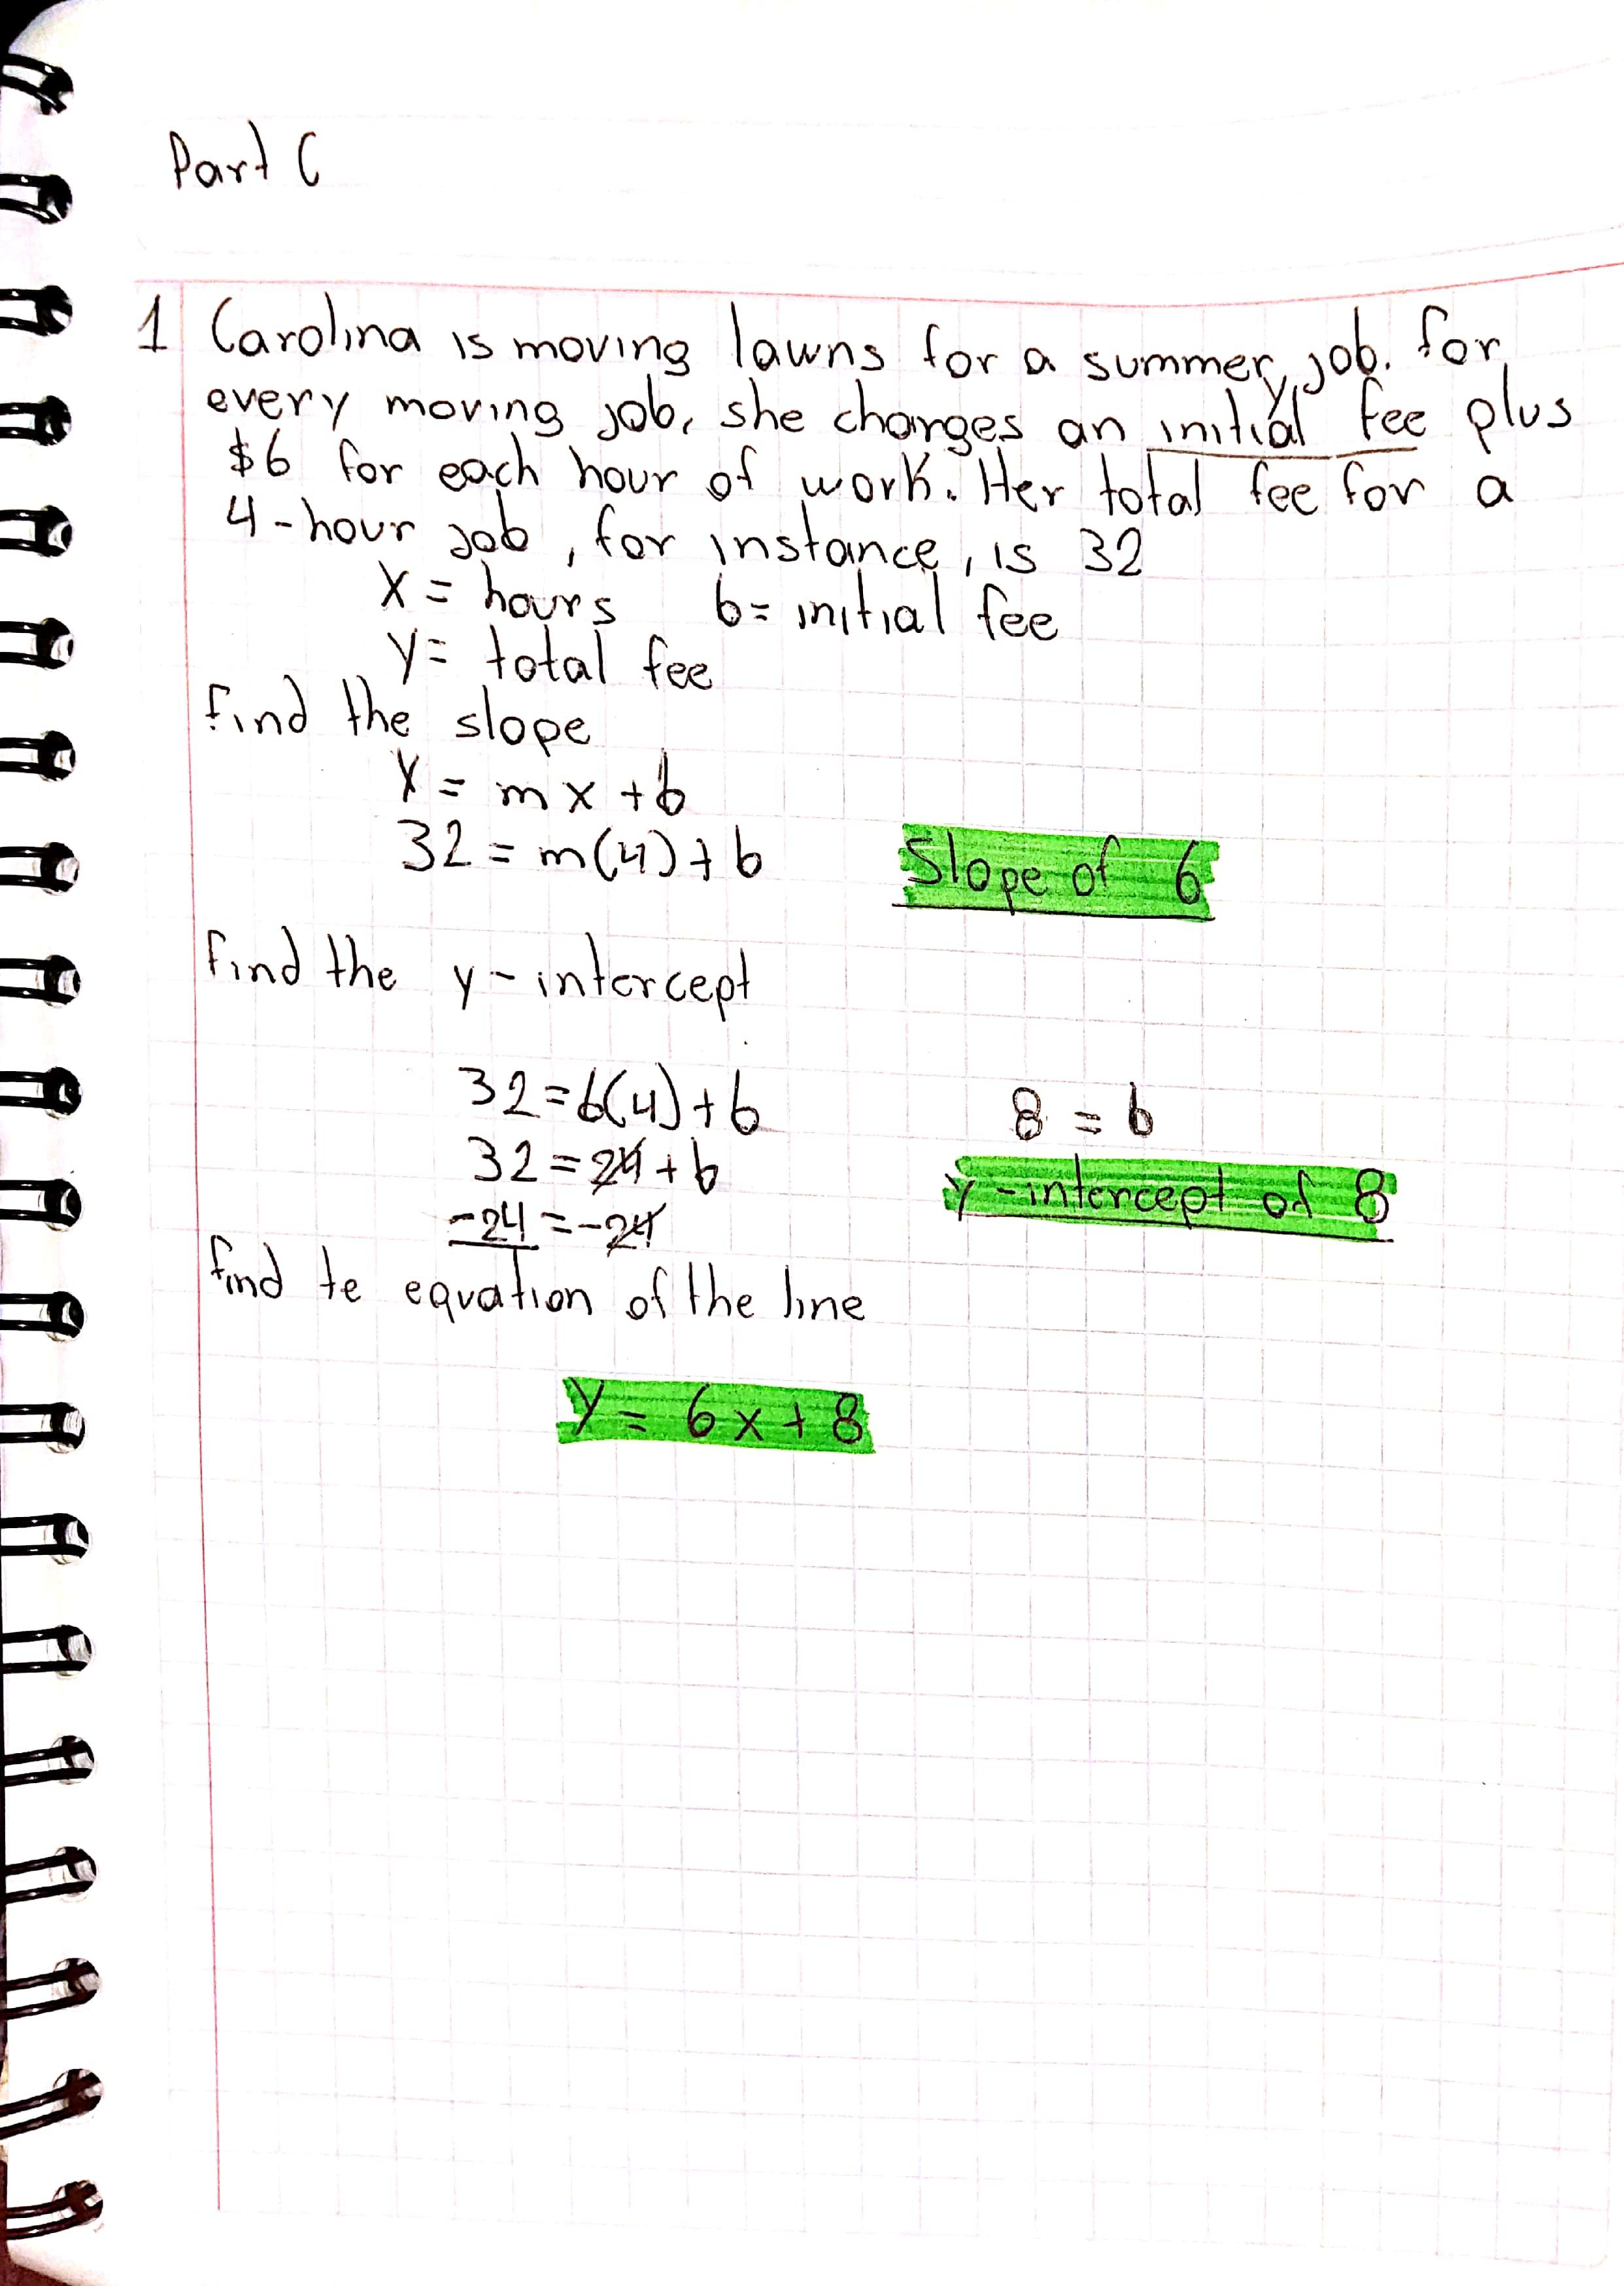 Part C
1 Carolina is moving lawns for a summer job. for
every moving job, she charges an initial fee plus
$6 for each hour of work. Her total fee for a
4-hour job, for instance, is 32
X = hours b = initial fee
y = total fee
find the slope
Y = mx + b
32 = m(4) + b Slope of 6
find the y-intercept
32 = 6(4) + b 8 = b
32 = 24 + b y-intercept of 8
-24 = -24
find te equation of the line
Y = 6x + 8